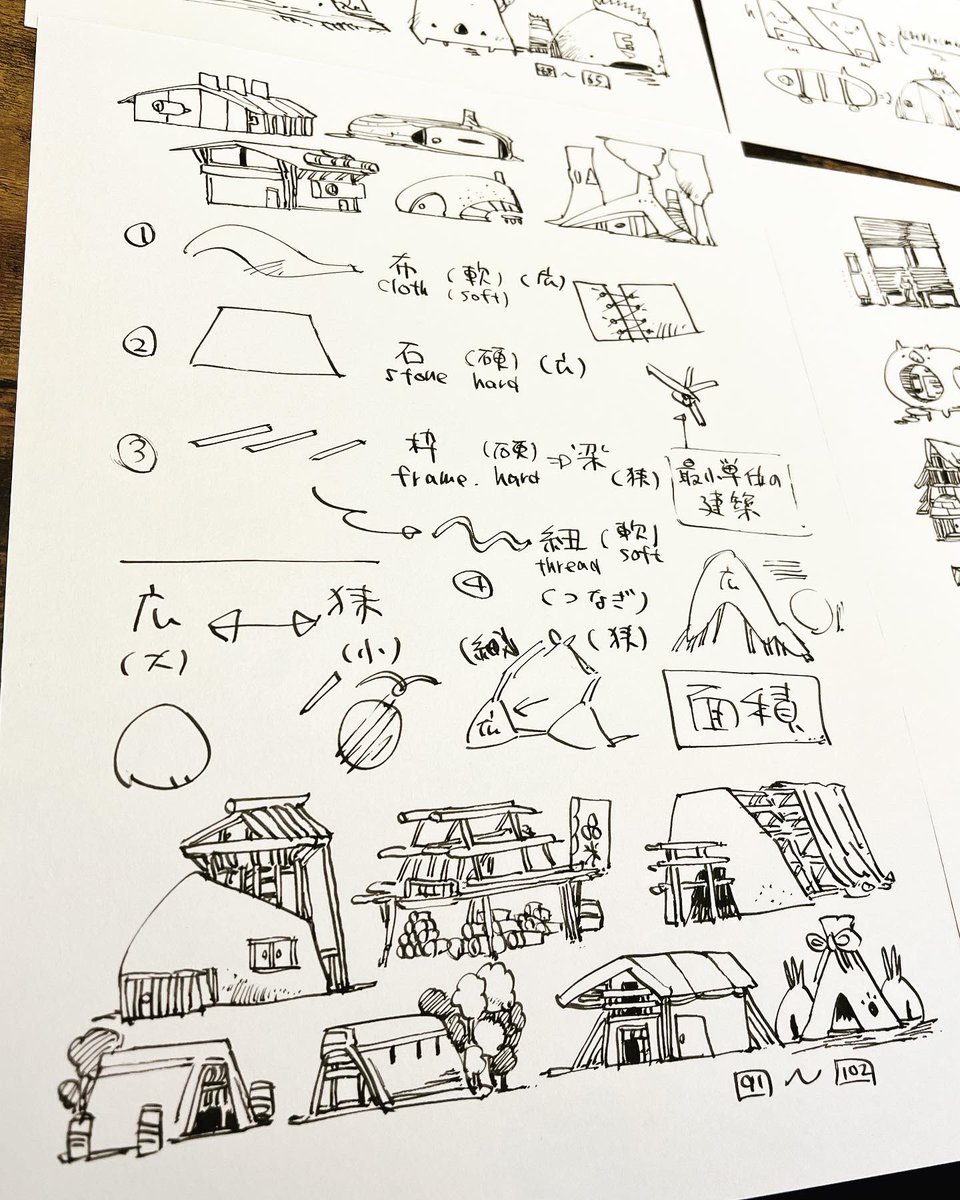 65
①
布 (軟) (広)
cloth (soft)
②
石 (硬) (広)
stone hard
③
枠 (硬) ⇒ 梁 (狭)
frame. hard
最小単位の
建築
紐 (軟)
thread soft
④
(つなぎ)
(狭)
広 ↔ 狭
(大) (小)
広
広
面積
91 ~ 102